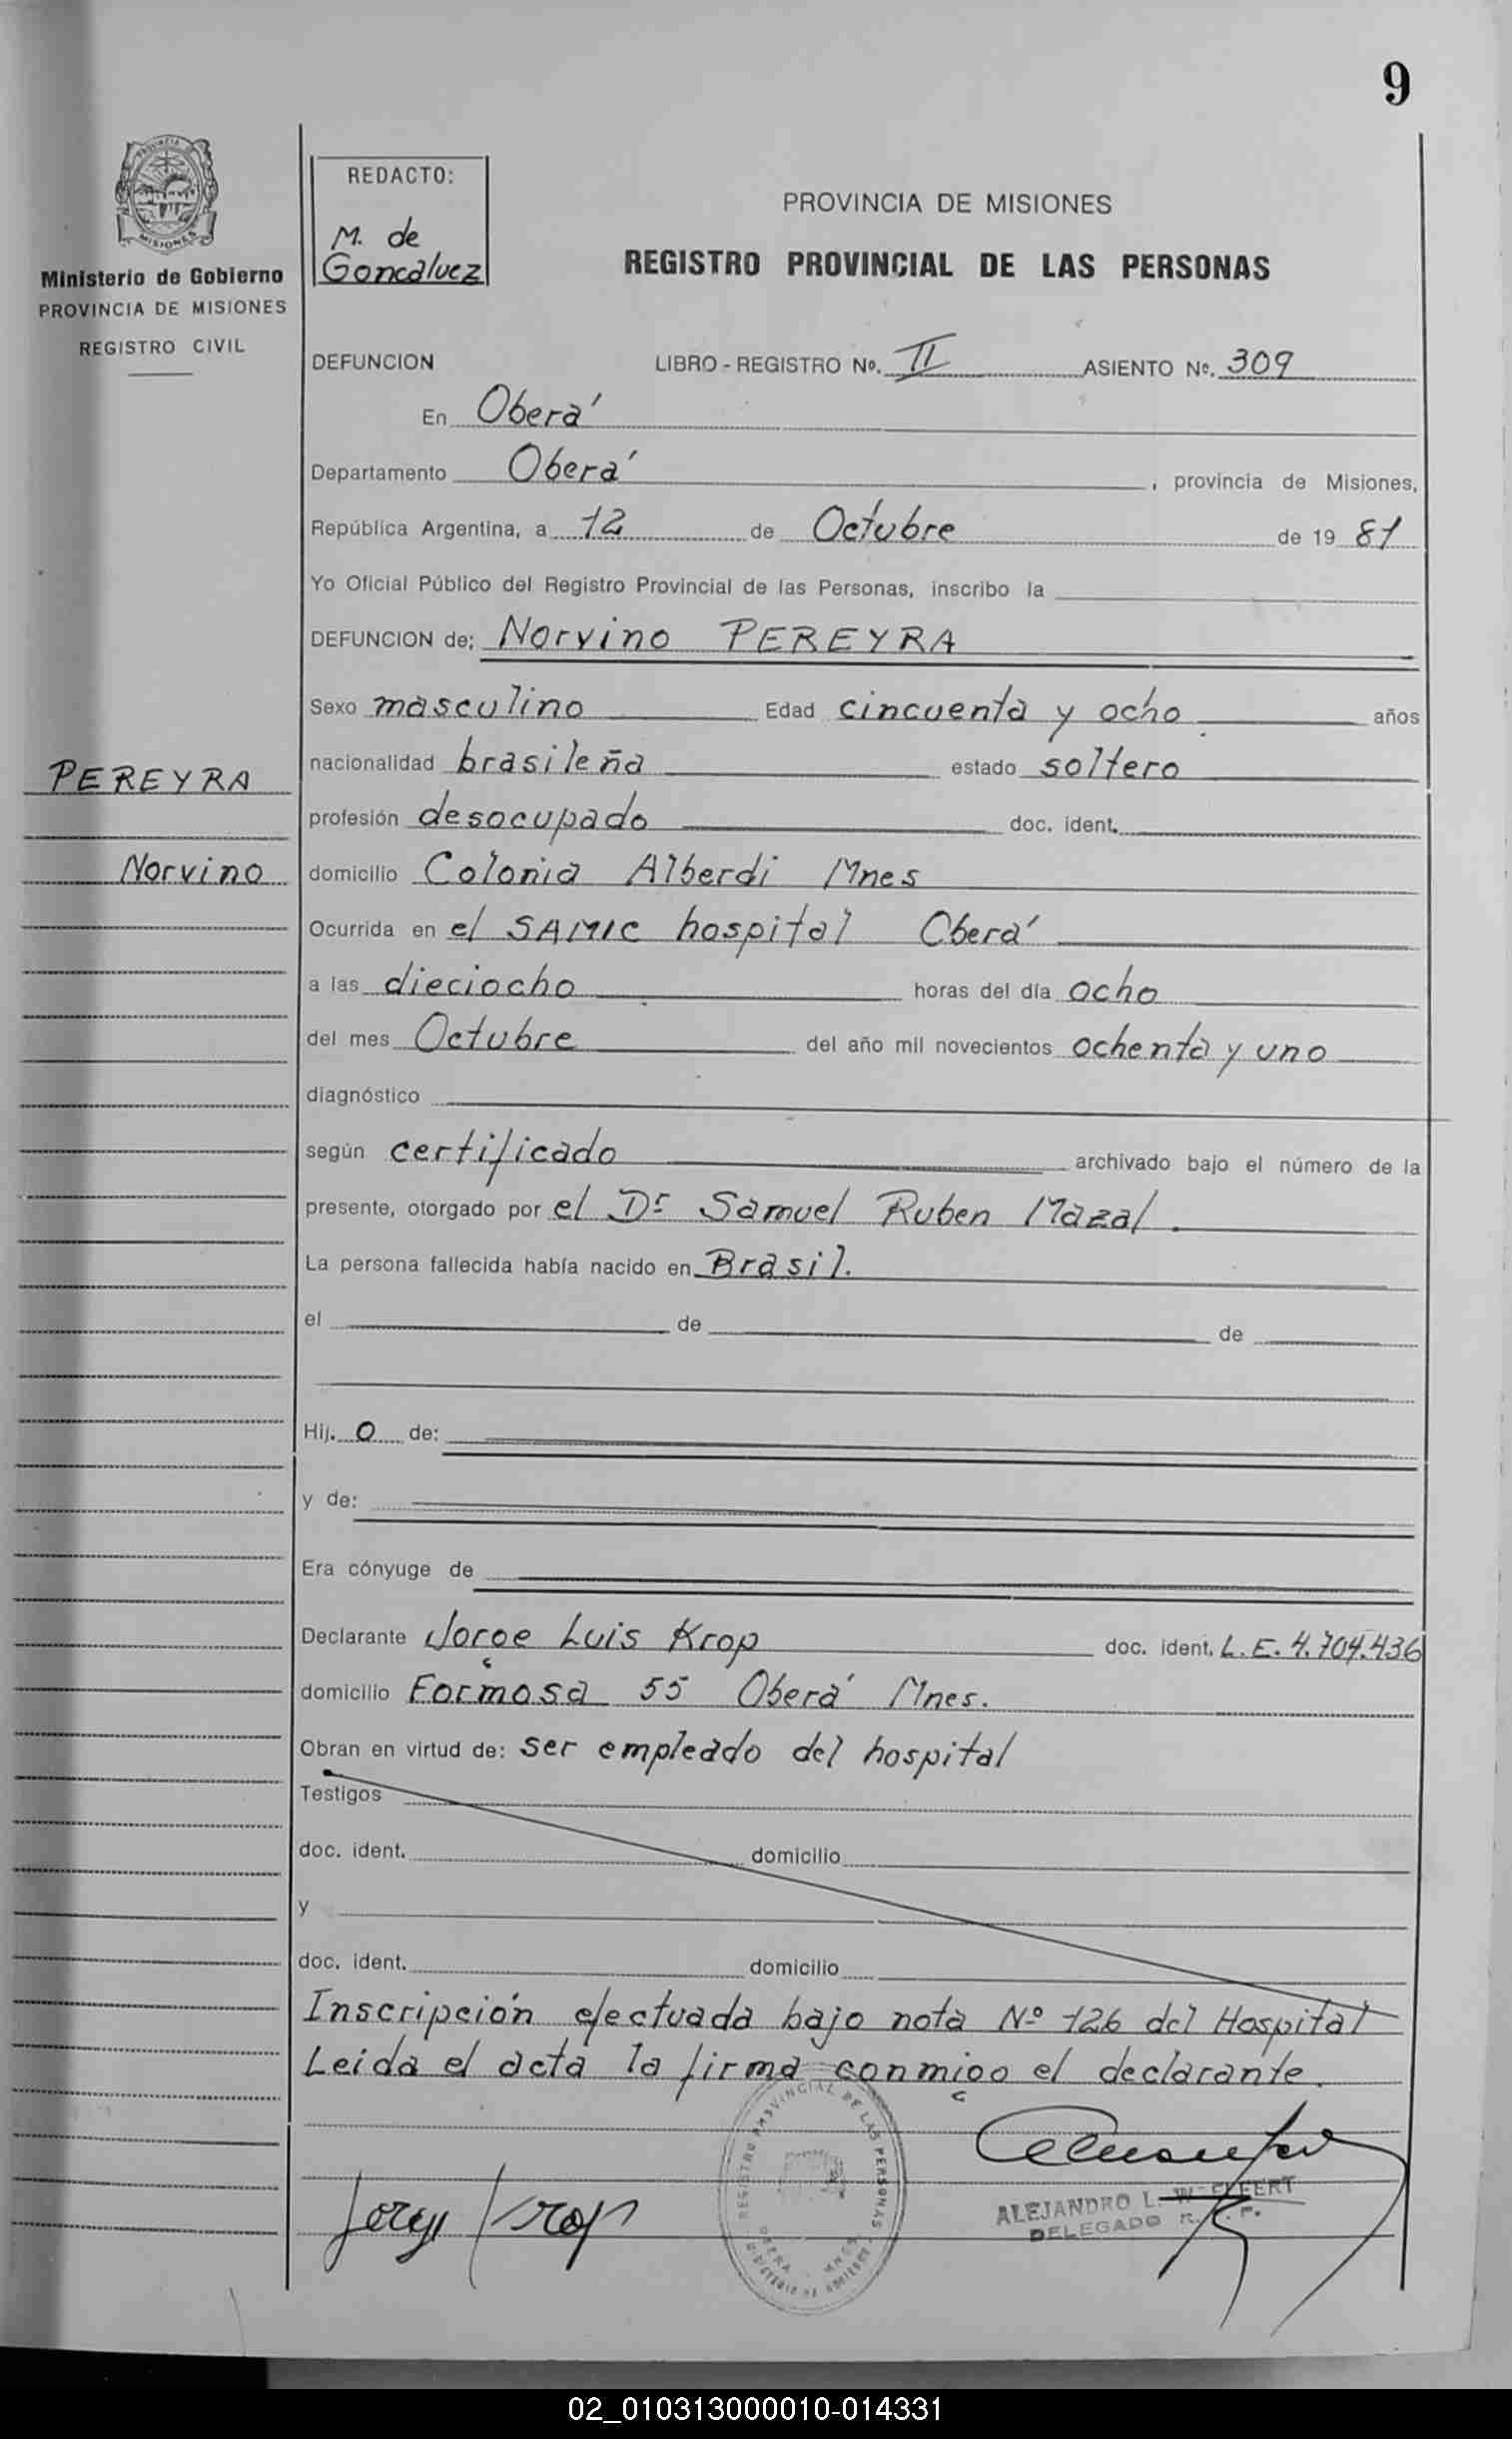 9
PROVINCIA DE
MISIONES
Ministerio de Gobierno
PROVINCIA DE MISIONES
REGISTRO CIVIL
REDACTO:
M. de
Goncalvez
PROVINCIA DE MISIONES
REGISTRO PROVINCIAL DE LAS PERSONAS
DEFUNCION LIBRO - REGISTRO Nº. II ASIENTO Nº. 309
En Oberá
Departamento Oberá , provincia de Misiones,
República Argentina, a 12 de Octubre de 19 81
Yo Oficial Público del Registro Provincial de las Personas, inscribo la
DEFUNCION de: Norvino PEREYRA
Sexo masculino Edad cincuenta y ocho años
PEREYRA
nacionalidad brasileña estado soltero
profesión desocupado doc. ident.
Norvino
domicilio Colonia Alberdi Mnes
Ocurrida en el SAMIC hospital Oberá
a las dieciocho horas del día ocho
del mes Octubre del año mil novecientos ochenta y uno
diagnóstico
según certificado archivado bajo el número de la
presente, otorgado por el Dr Samuel Ruben Mazal.
La persona fallecida había nacido en Brasil.
el de de
Hij. o de:
y de:
Era cónyuge de
Declarante Jorge Luis Krop doc. ident. L.E. 4.704.436
domicilio Formosa 55 Oberá Mnes.
Obran en virtud de: ser empleado del hospital
Testigos
doc. ident. domicilio
y
doc. ident. domicilio
Inscripción efectuada bajo nota Nº 126 del Hospital
Leida el acta la firma conmigo el declarante.
REGISTRO PROVINCIAL DE LAS PERSONAS
Jorge Krop
ALEJANDRO L.
DELEGADO R. P.
02_010313000010-014331